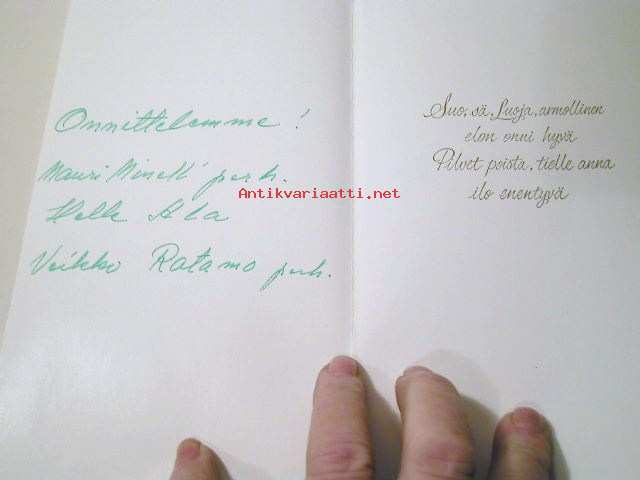 Onnittelemme!
Mauri perh.
Helle Ala
Veikko Ratamo perh.
Antikvariaatti.net
Suo, sä, Luoja, armollinen
elon onni hyvä
Pilvet poista, tielle anna
ilo enentyvä